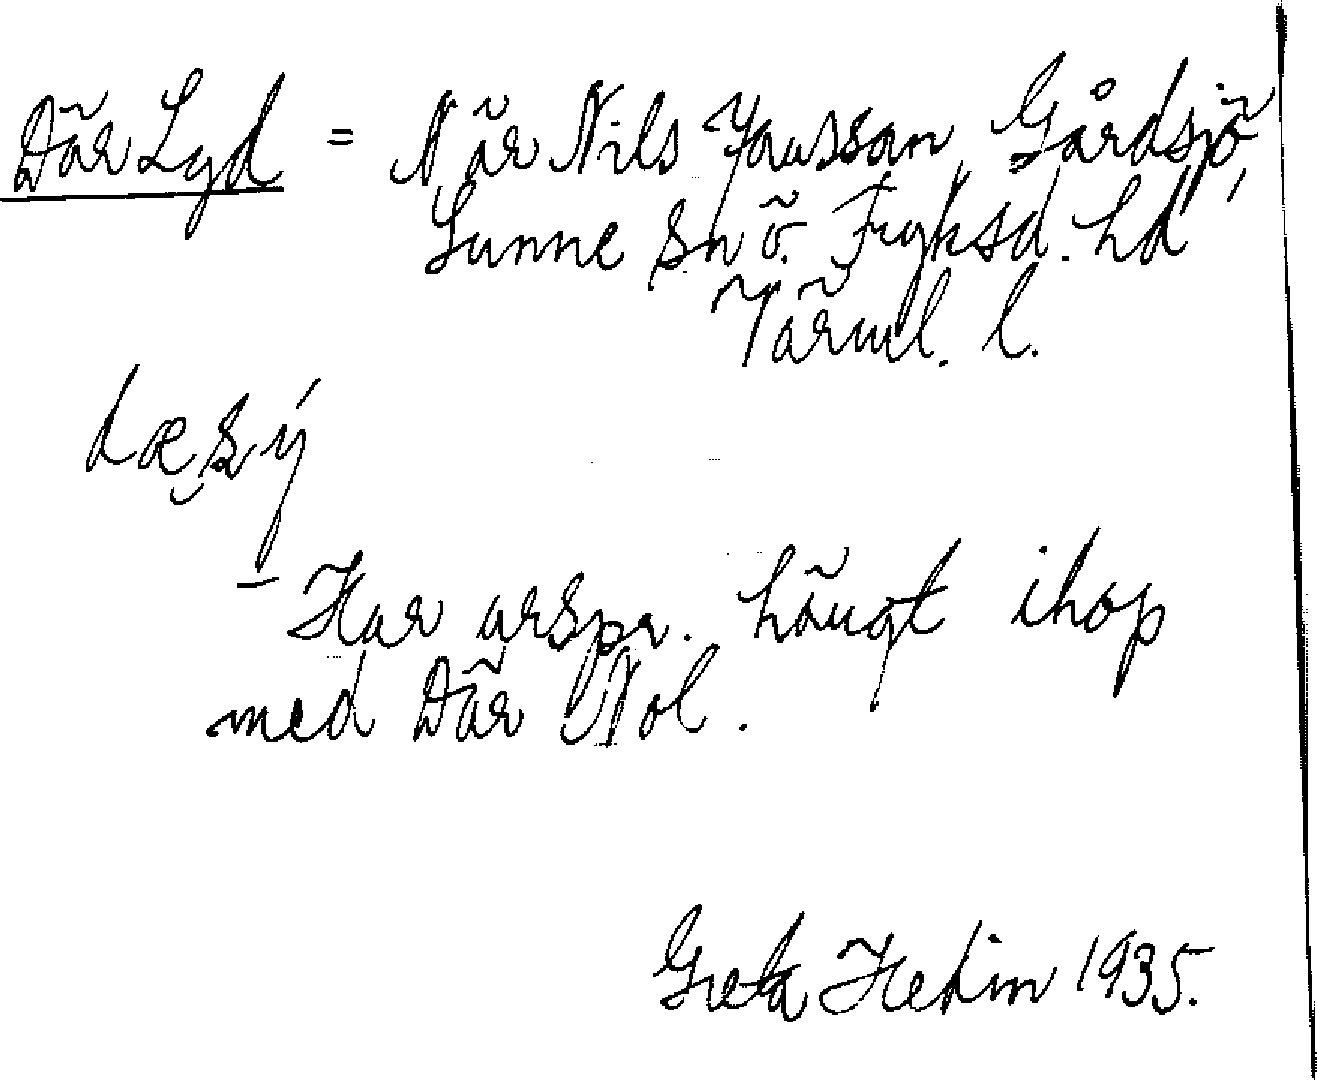 Där Lyd = När Nils Jansson, Gårdsjö,
Sunne sn ö. Fryksd. hd
Värml. l.
— Har urspr. hängt ihop
med Där Nol.
Greta Hedin 1935.